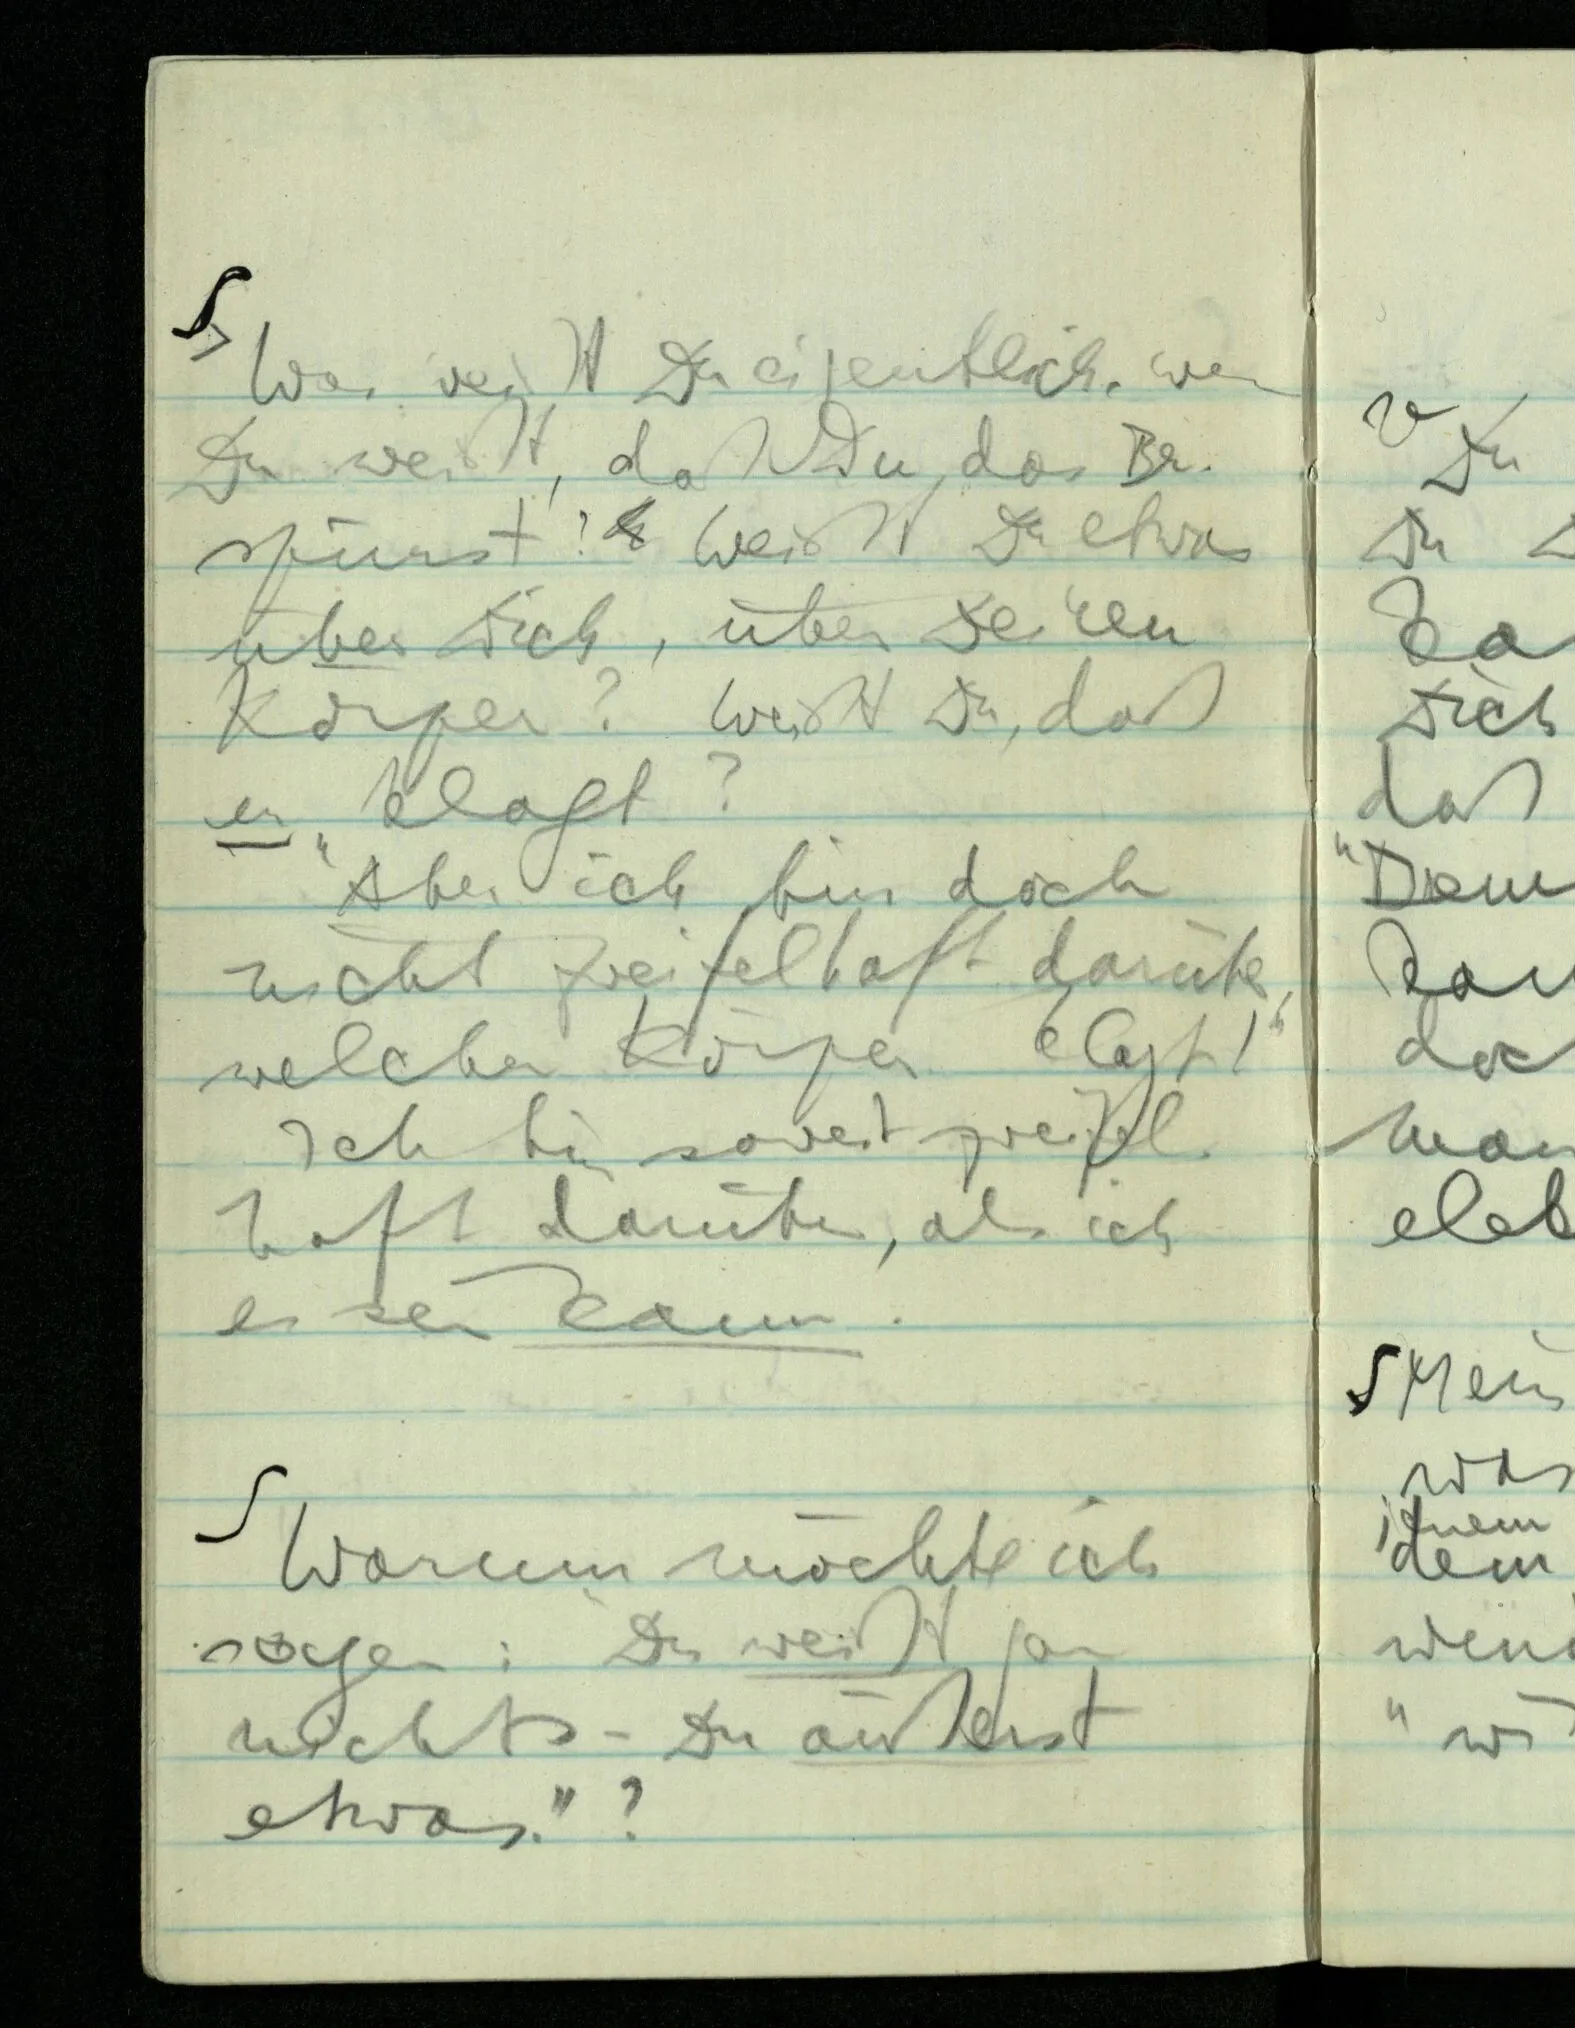 Was weißt Du eigentlich, wenn
Du weißt, daß Du das Br.
spürst? Weißt Du etwas
über Dich, über Deinen
Körper? Weißt Du, daß
er klagt?
"Aber ich bin doch
nicht zweifelhaft darüber,
welcher Körper klagt!"
Ich bin soweit zweifel-
haft darüber, als ich
es sein kann.
Warum möchte ich
sagen: "Du weißt gar
nichts – Du äußerst
etwas."?
Du
Du
Ka
Dich
daß
"Dem
kan
doc
man
eleb
Mein
was
jenem
dem
wen
" wi